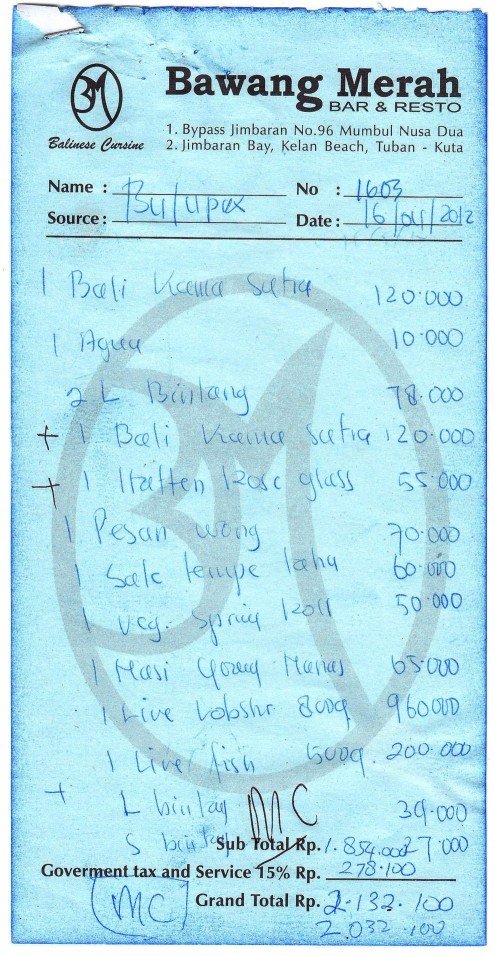 BM
Bawang Merah
BAR & RESTO
Balinese Cursine
1. Bypass Jimbaran No.96 Mumbul Nusa Dua
2. Jimbaran Bay, Kelan Beach, Tuban - Kuta
Name : No : 1603
Source : Date : 16/04/2012
1 Bali Kama Sutra 120.000
1 Aqua 10.000
2 L Bintang 78.000
+ 1 Bali Kama Sutra 120.000
+ 1 Hatten Rose glass 55.000
1 Pesan udang 70.000
1 Sate tempe tahu 60.000
1 Veg. Spring Roll 50.000
1 Nasi Goreng Nanas 65.000
1 Live Lobster 800g 960000
1 Live fish 500g. 200.000
+ L bintang 39.000
S bintang 27000
MC
Sub Total Rp. 1.854.000
Goverment tax and Service 15% Rp. 278.100
(MC) Grand Total Rp. 2.132.100
2.032.100